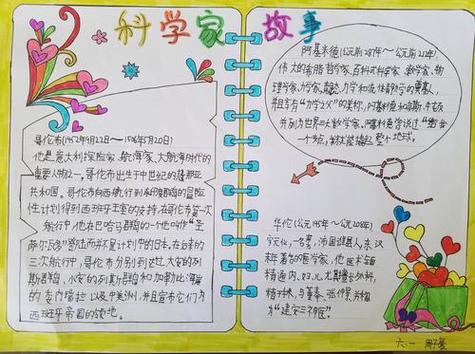 科学家故事
哥伦布(1452年9月22日～1506年5月20日)
他是意大利探险家、航海家、大航海时代的
重要人物之一。哥伦布出生于中世纪的热那亚
共和国。哥伦布向西航行到
性计划得到西班牙王室的支持,在哥伦布首次
航行中,他在巴哈马群岛的一个地叫作“圣
萨尔瓦多”登陆而不是计划中的日本,在后来的
三次航行中,哥伦布分别到达了大安的列
斯群岛、小安的列斯群岛和加勒比海岸
的委内瑞拉以及中美洲,并且宣布它们为
西班牙帝国的领地。
阿基米德(公元前287年～公元前212年)
伟大的古希腊哲学家、百科式科学家、数学家、物
理学家、力学家、静态力学和流体静力学的奠基人,
并且享有“力学之父”的美称,阿基米德和高斯、牛顿
并列为世界三大数学家。阿基米德曾说过“给我
一个支点,我就能撬起整个地球。
华佗(公元145年～公元208年)
字元化,一名旉,沛国谯县人,东汉
末年著名的医学家,他医术全面
精通内、妇、儿、
与董奉、张仲景并称
为“建安三神医”。
六.一